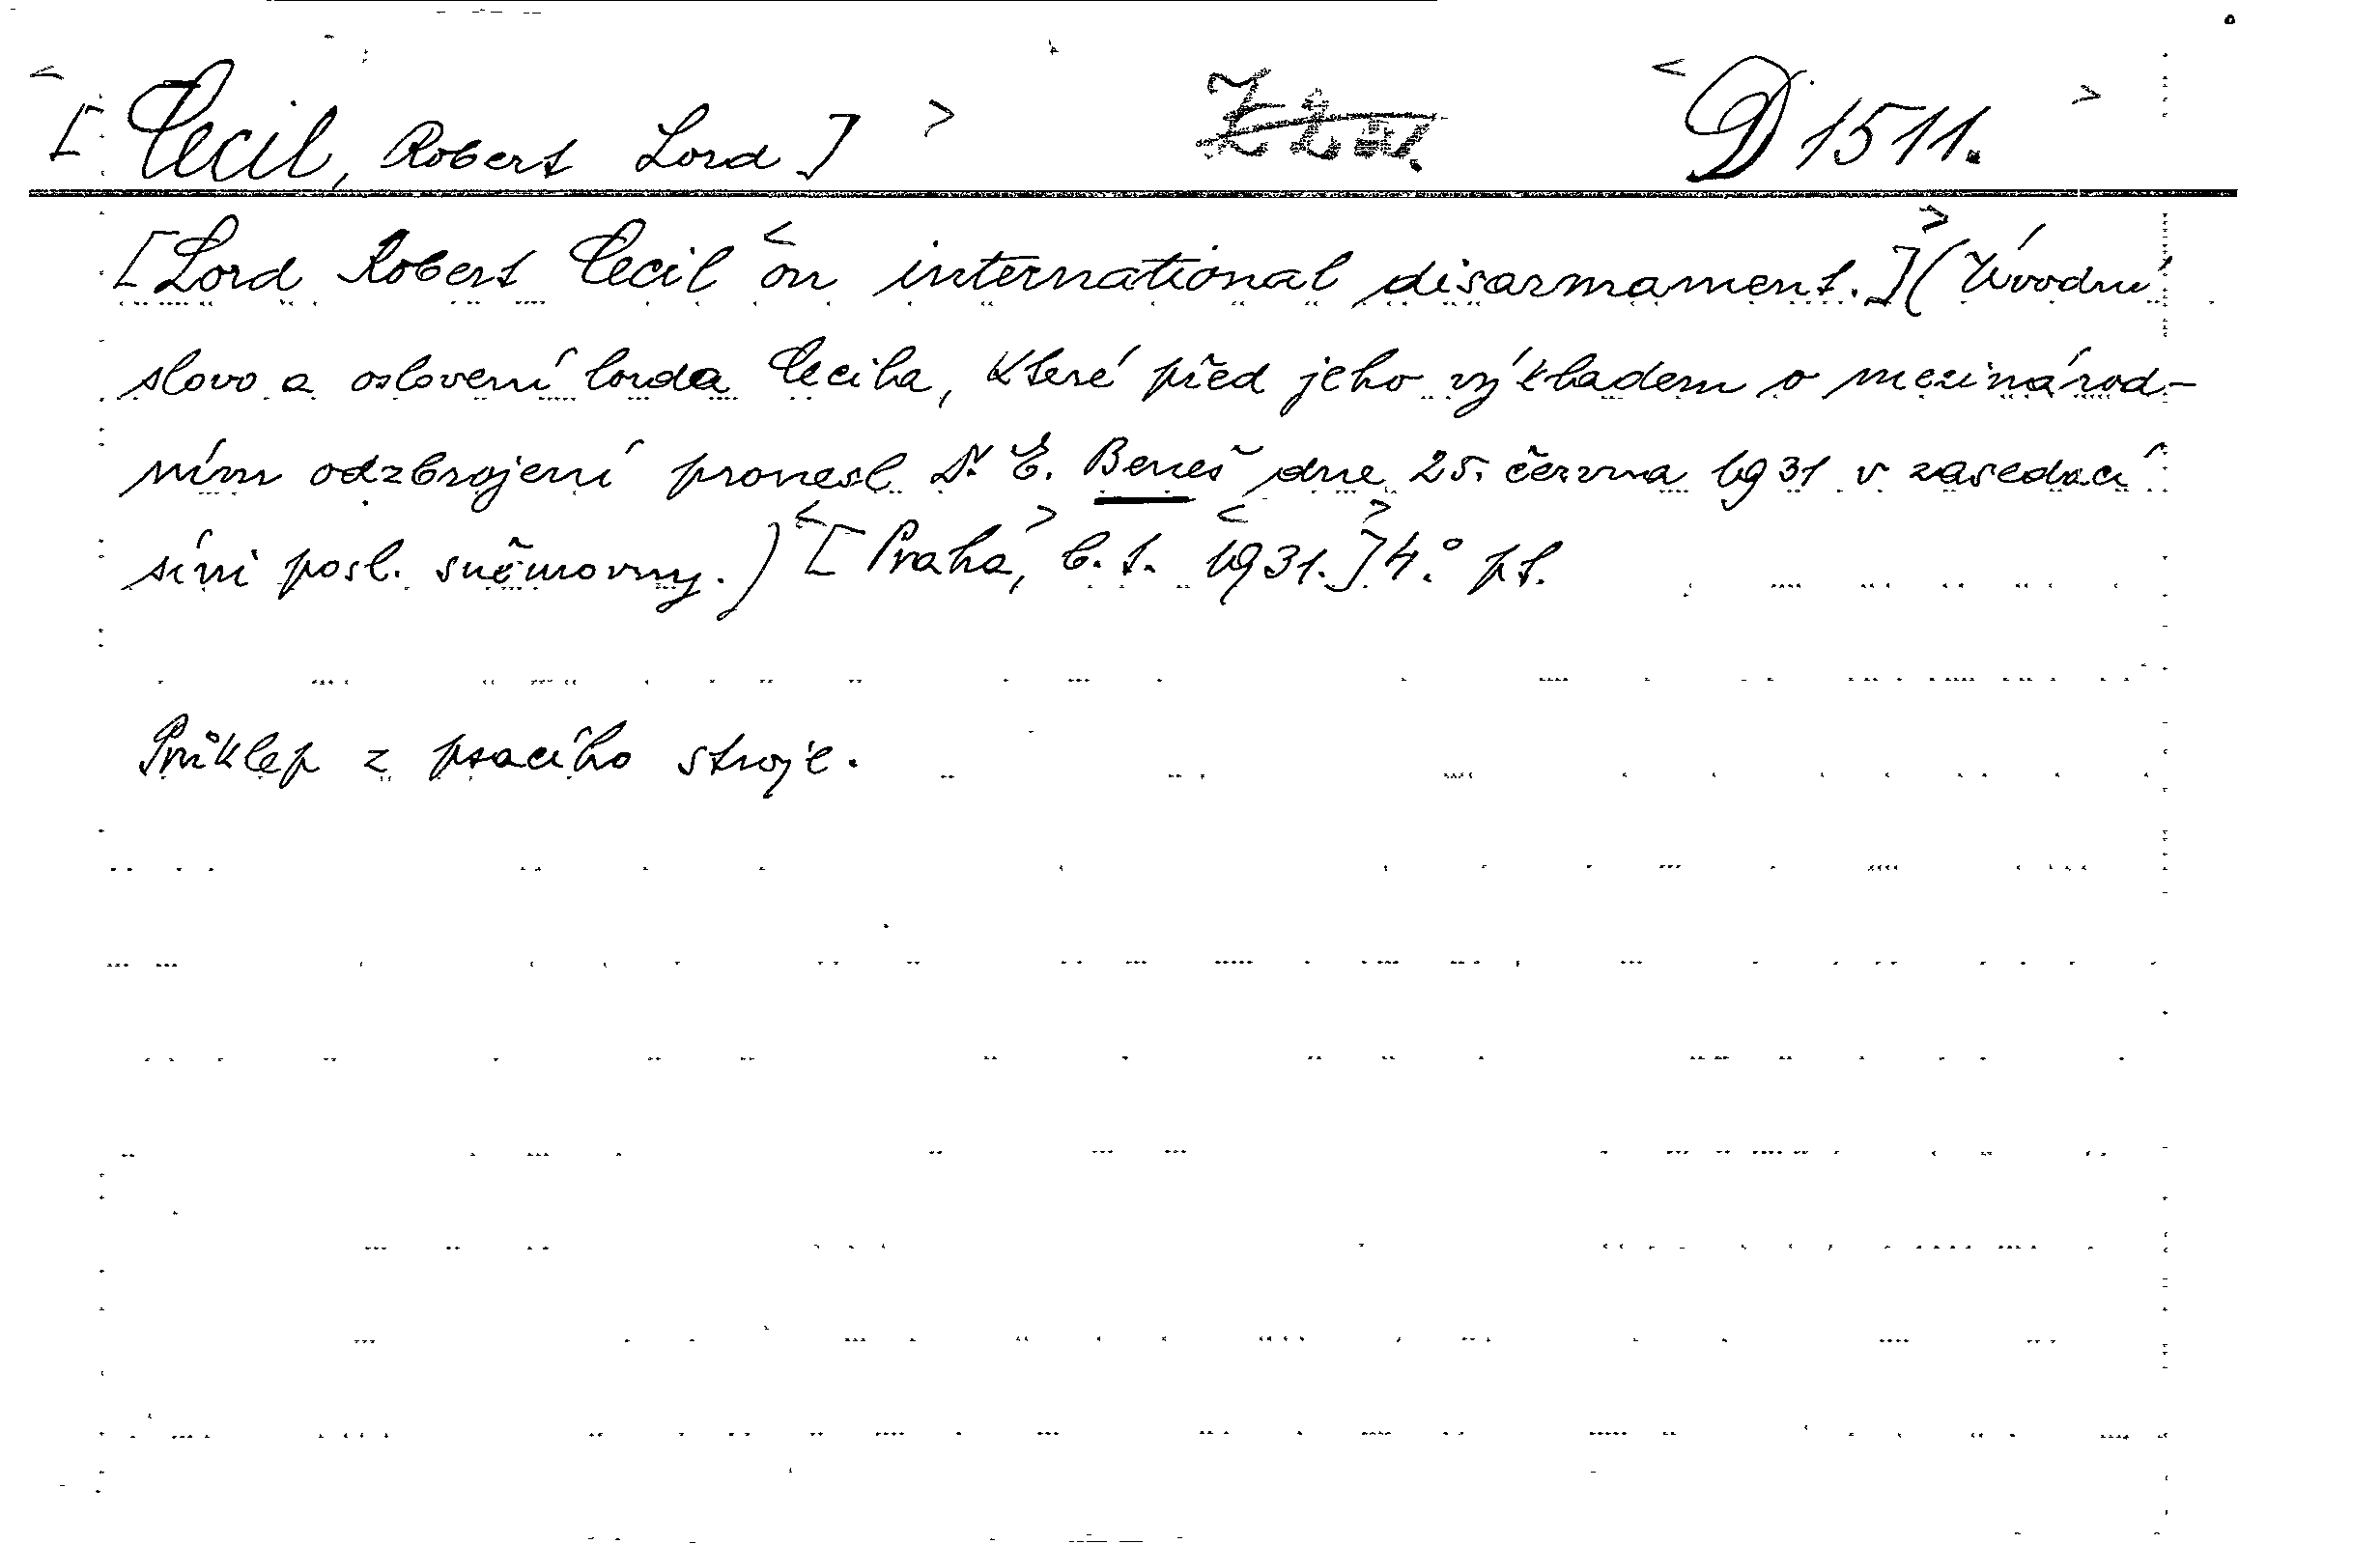 < [Cecil, Robert Lord] > < D 1511. >
[Lord Robert Cecil < on international disarmament.] > (Úvodní
slovo a oslovení lorda Cecila, které před jeho výkladem o mezinárod-
ním odzbrojení pronesl Dr. E. Beneš dne 25. června 1931 v zasedací
síni posl. sněmovny.) < [Praha, > b. t. < 1931.] > 4.° pt.
Průklep z psacího stroje.